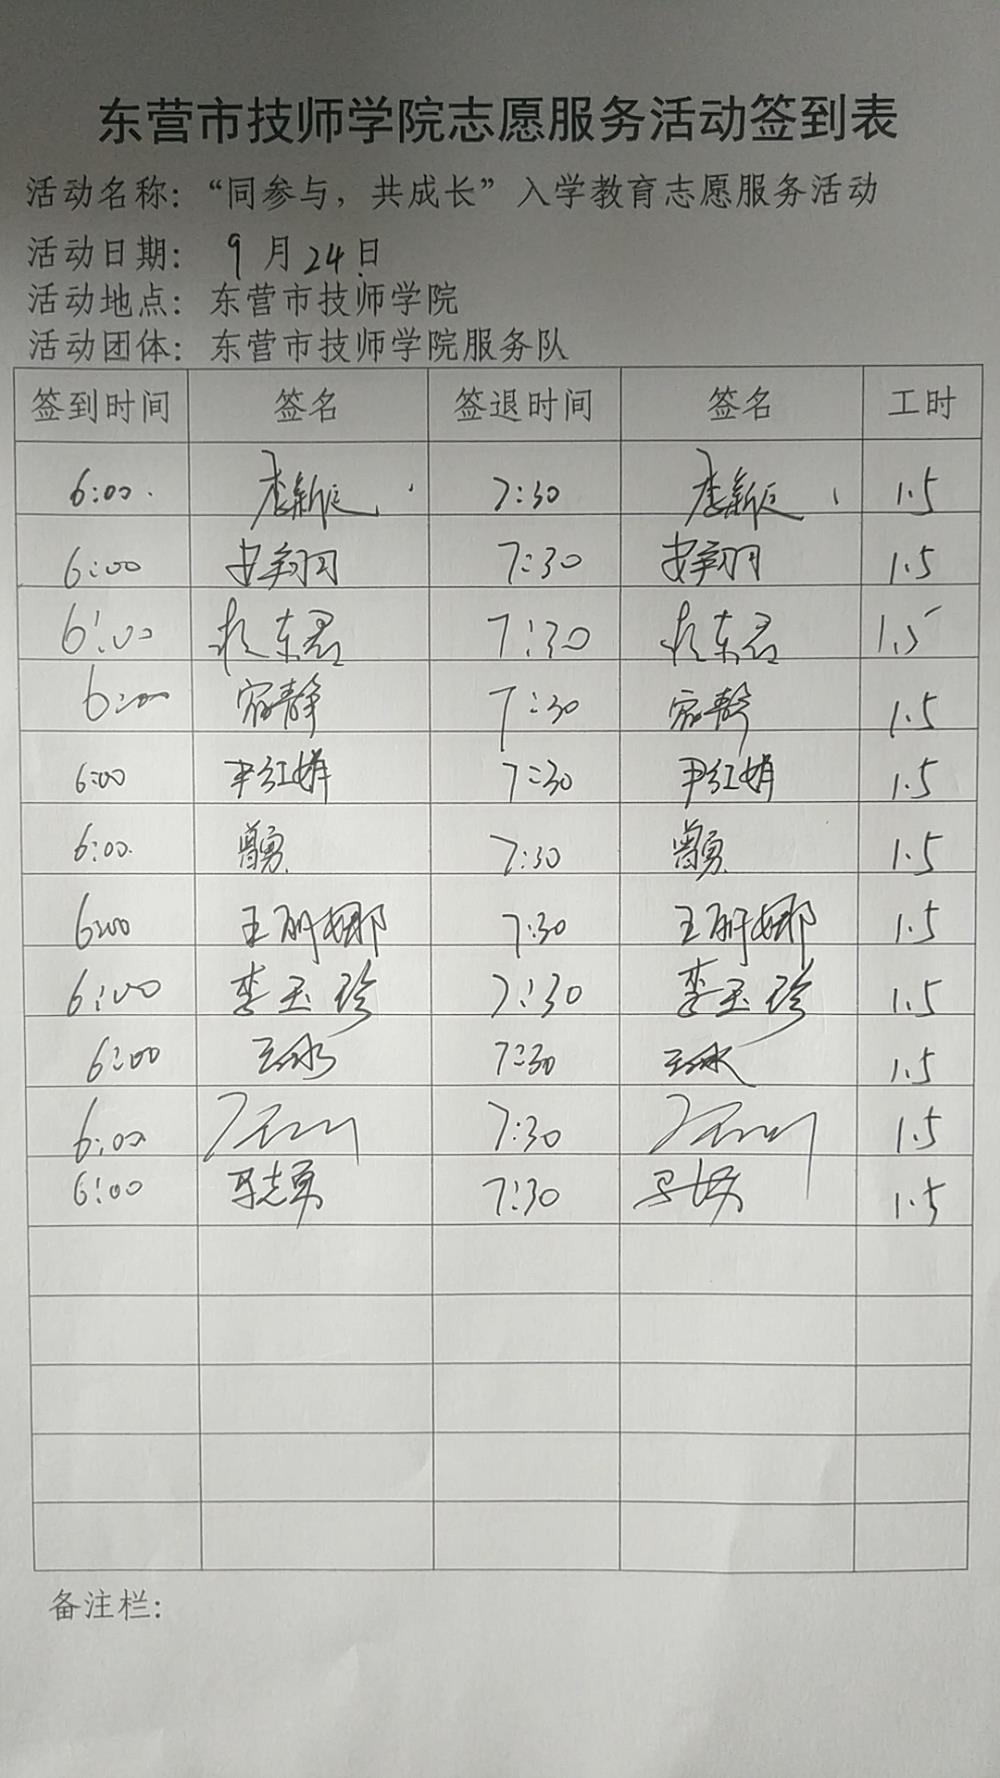 东营市技师学院志愿服务活动签到表
活动名称：“同参与，共成长”入学教育志愿服务活动
活动日期： 9 月 24 日
活动地点：东营市技师学院
活动团体：东营市技师学院服务队
签到时间 签名 签退时间 签名 工时
6:00 7:30 1.5
6:00 安翔羽 7:30 安翔羽 1.5
6:00 7:30 1.5
6:00 7:30 1.5
6:00 尹红娟 7:30 尹红娟 1.5
6:00 曾勇 7:30 曾勇 1.5
6:00 王丽娜 7:30 王丽娜 1.5
6:00 李玉珍 7:30 李玉珍 1.5
6:00 7:30 1.5
6:00 7:30 1.5
6:00 马志勇 7:30 1.5
备注栏：